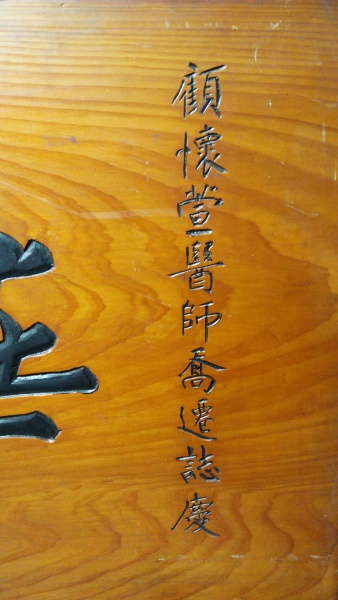 顧懷萱醫師喬遷誌慶